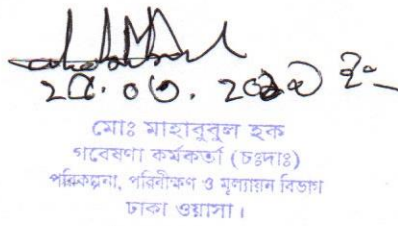 ২৫.০৩.
মোঃ মাহাবুবুল হক
গবেষণা কর্মকর্তা (চঃদাঃ)
পরিকল্পনা, পরিবীক্ষণ ও মূল্যায়ন বিভাগ
ঢাকা ওয়াসা।